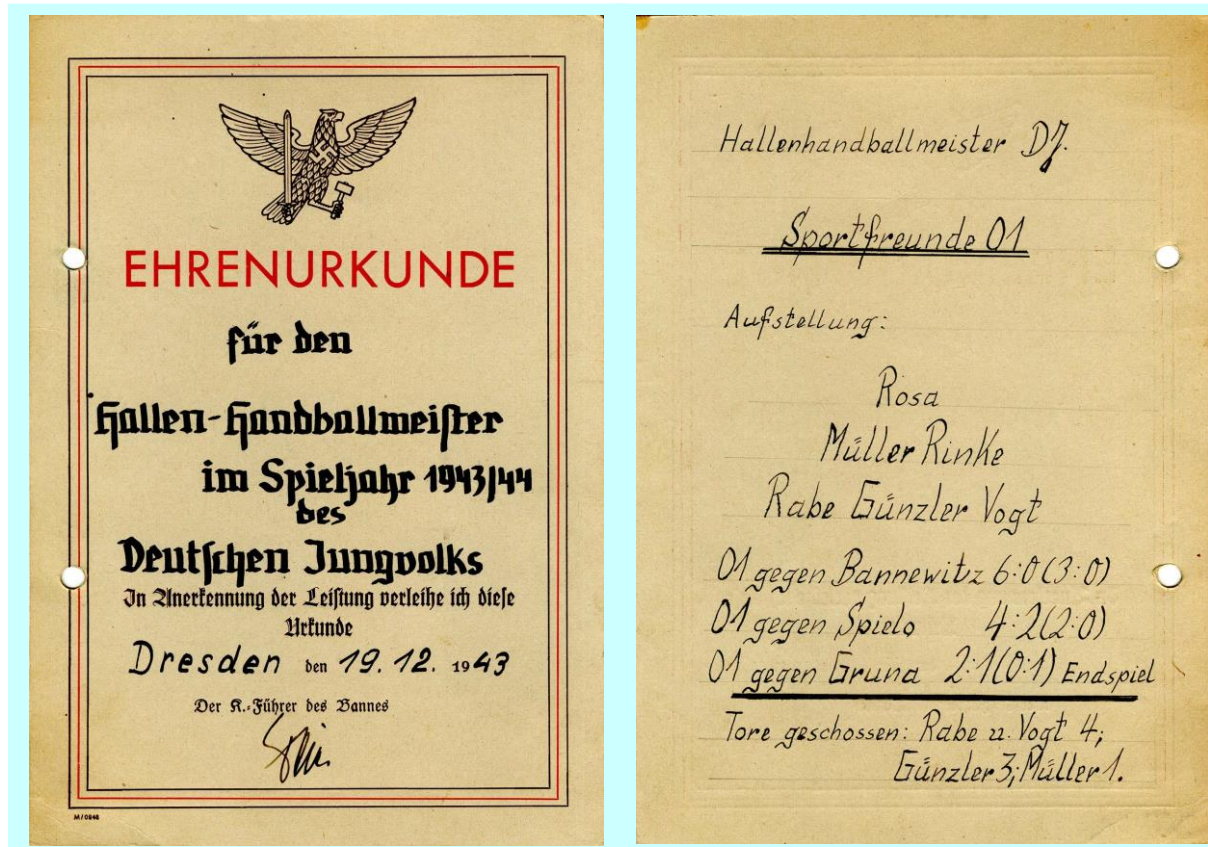 EHRENURKUNDE
für den
Hallen-Handballmeister
im Spieljahr 1943/44
des
Deutschen Jungvolks
In Anerkennung der Leistung verleihe ich diese
Urkunde
Dresden den 19. 12. 1943
Der K.-Führer des Bannes
M/0848
Hallenhandballmeister DJ.
Sportfreunde 01
Aufstellung:
Rosa
Müller Rinke
Rabe Günzler Vogt
01 gegen Bannewitz 6:0(3:0)
01 gegen Spielo 4:2(2:0)
01 gegen Gruna 2:1(0:1) Endspiel
Tore geschossen: Rabe u. Vogt 4;
Günzler 3; Müller 1.